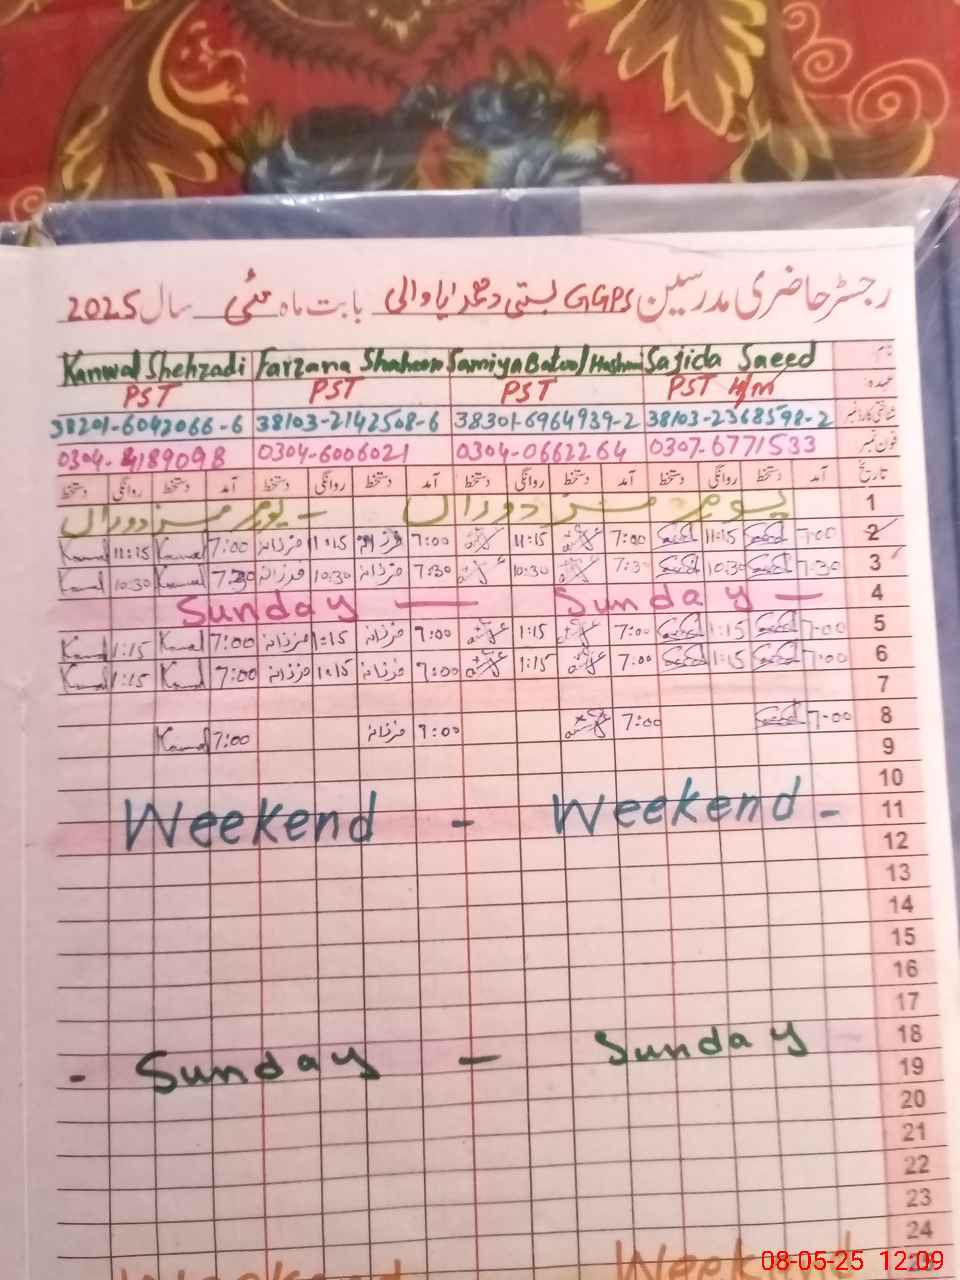 رجسٹر حاضری مدرسین GGPS بستی محمد یاوالی بابت ماہ مئی سال 2025
نام Sajida Saeed Samiya Batool Hashmi Farzana Shaheen Kanwal Shehzadi
عہدہ PST H/M PST PST PST
شناختی کارڈ نمبر 38103-2368598-2 38301-6964939-2 38103-2142508-6 38201-6042066-6
فون نمبر 0307-6771533 0304-0662264 0304-6006021 0304-4189098
تاریخ آمد دستخط روانگی دستخط آمد دستخط روانگی دستخط آمد دستخط روانگی دستخط آمد دستخط روانگی دستخط
1 یوم مزدوراں - یوم مزدوراں
2 7:00 Saeed 11:15 Saeed 7:00 11:15 7:00 فرزانہ 11:15 فرزانہ 7:00 Kanwal 11:15 Kanwal
3 7:30 Saeed 10:30 Saeed 7:30 10:30 7:30 فرزانہ 10:30 فرزانہ 7:30 Kanwal 10:30 Kanwal
4 Sunday — Sunday —
5 7:00 Saeed 1:15 Saeed 7:00 1:15 7:00 فرزانہ 1:15 فرزانہ 7:00 Kanwal 1:15 Kanwal
6 7:00 Saeed 1:15 Saeed 7:00 1:15 7:00 فرزانہ 1:15 فرزانہ 7:00 Kanwal 1:15 Kanwal
7
8 7:00 Saeed 7:00 7:00 فرزانہ 7:00 Kanwal
9
10
11 Weekend - Weekend -
12
13
14
15
16
17
18 - Sunday - Sunday
19
20
21
22
23
24
25 Weekend Weekend
08-05-25 12:09